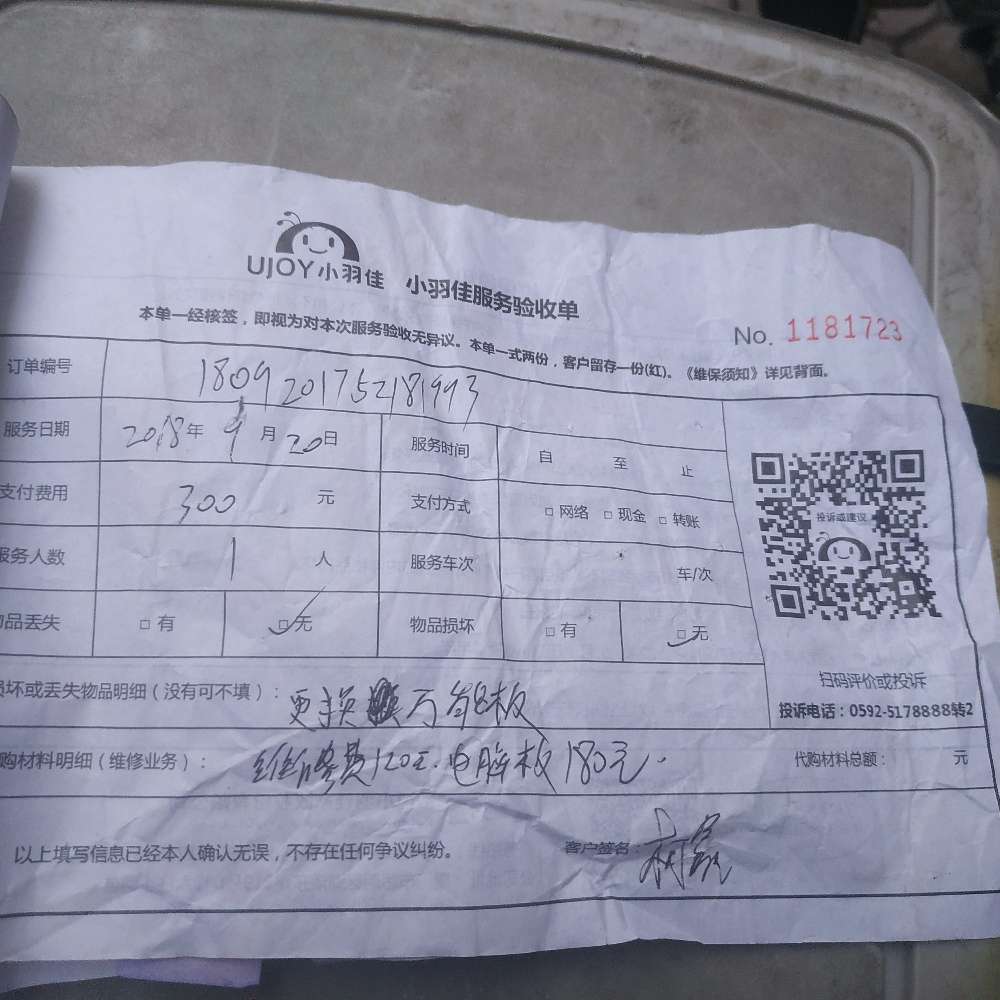 UJOY小羽佳 小羽佳服务验收单
No. 1181723
本单一经核签，即视为对本次服务验收无异议。本单一式两份，客户留存一份(红)。《维保须知》详见背面。
订单编号 1809201752181993
服务日期 2018年9月20日 服务时间 自 至 止
支付费用 300 元 支付方式 □网络 □现金 □转账
服务人数 1 人 服务车次 车/次
品丢失 □有 □无 物品损坏 □有 □无
投诉或建议
扫码评价或投诉
投诉电话：0592-5178888转2
坏或丢失物品明细（没有可不填）： 更换 万能板
购材料明细（维修业务）： 维修费120元.电脑板180元. 代购材料总额： 元
以上填写信息已经本人确认无误，不存在任何争议纠纷。 客户签名：